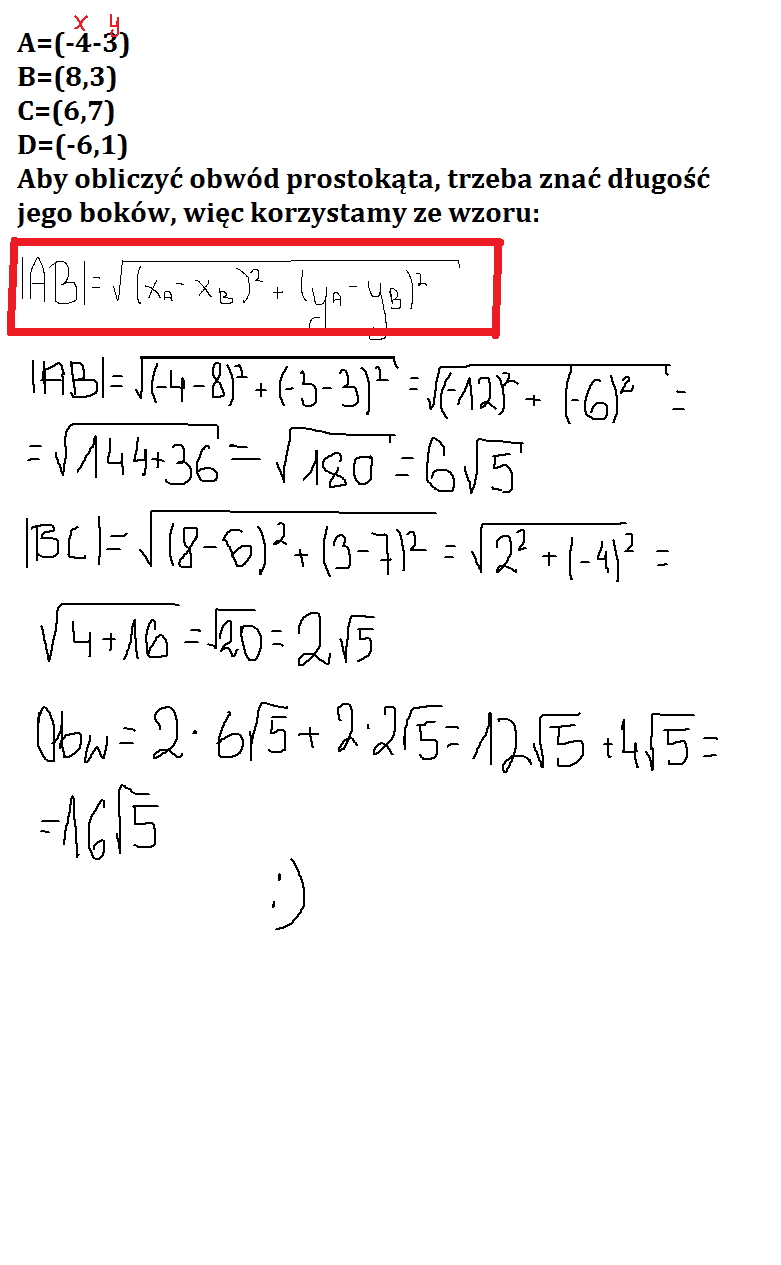 x y
A=(-4-3)
B=(8,3)
C=(6,7)
D=(-6,1)
Aby obliczyć obwód prostokąta, trzeba znać długość
jego boków, więc korzystamy ze wzoru:
|AB|=√(x_A-x_B)²+(y_A-y_B)²
|AB|=√(-4-8)²+(-3-3)²=√(-12)²+(-6)²=
=√144+36=√180=6√5
|BC|=√(8-6)²+(3-7)²=√2²+(-4)²=
√4+16=√20=2√5
Obw=2·6√5+2·2√5=12√5+4√5=
=16√5
:)